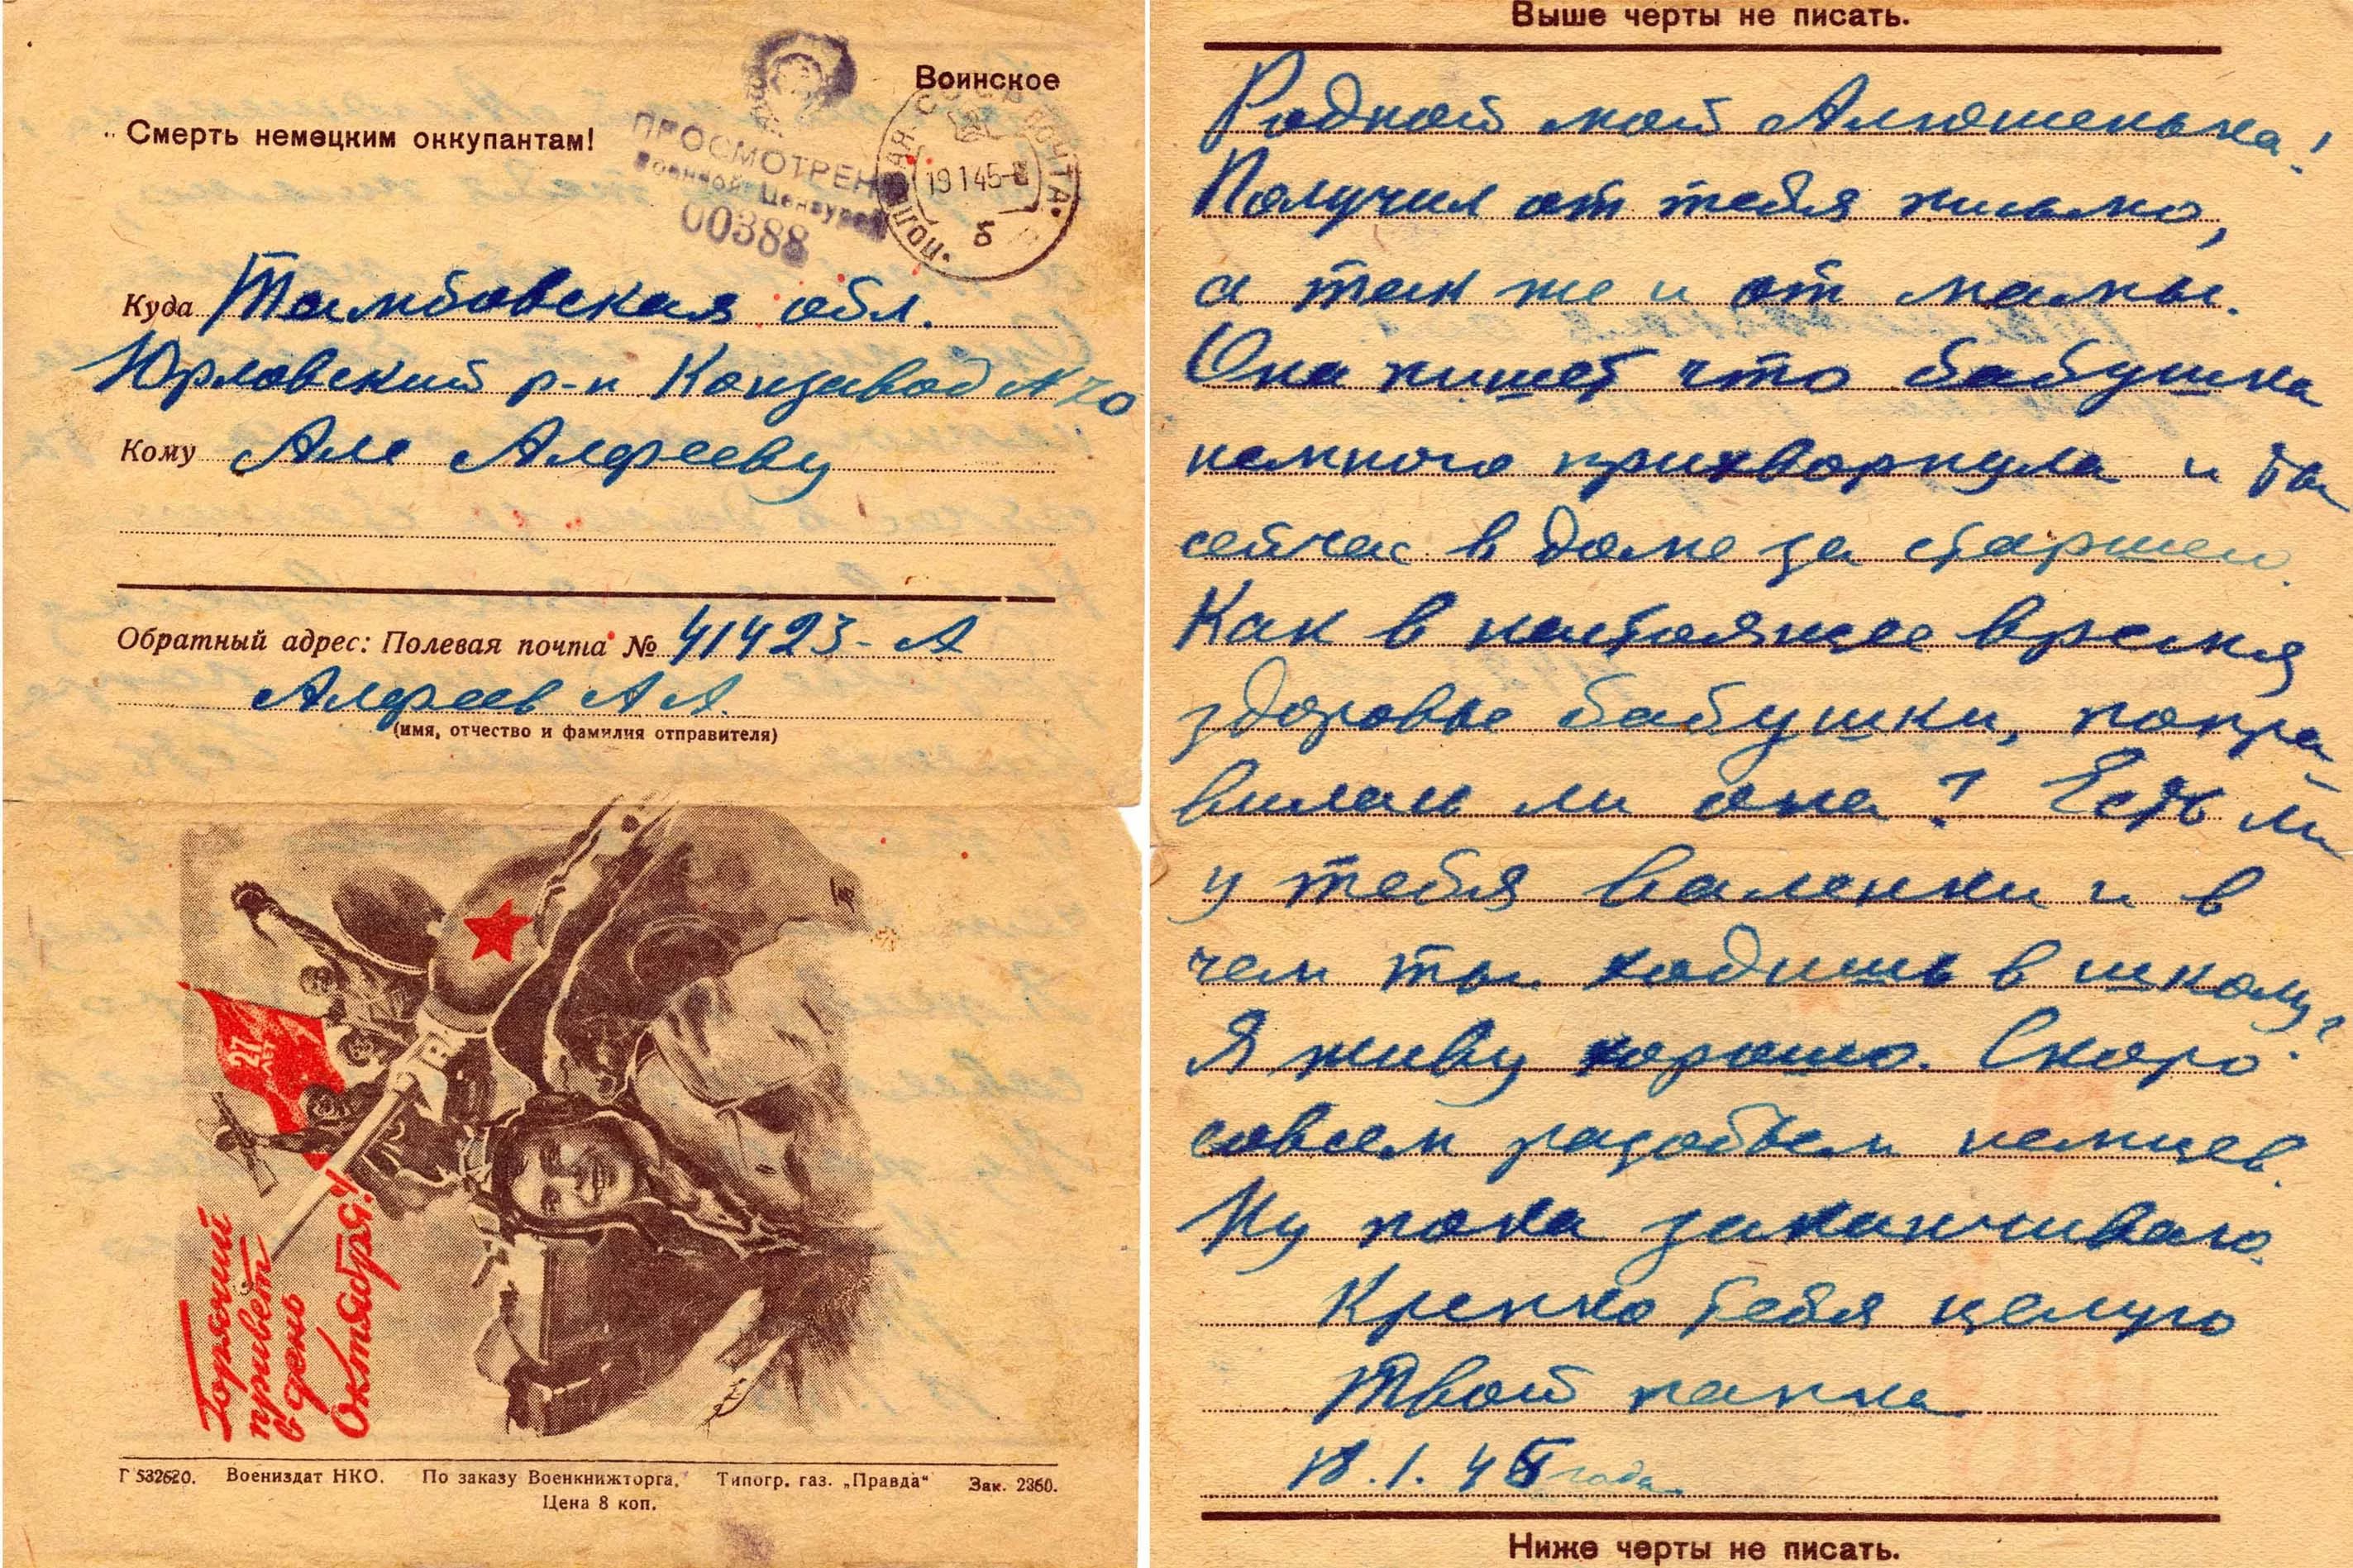 Воинское
Смерть немецким оккупантам!
ПРОСМОТРЕНО
Военной Цензурой
00388
ПОЛЕВАЯ ПОЧТА
19 1 45
б
Куда Тамбовская обл.
Юрловский р-н Конзавод N 70
Кому Але Алфееву
Обратный адрес: Полевая почта № 41423-А
Алфеев А А.
(имя, отчество и фамилия отправителя)
27
ЛЕТ
Горячий
привет
в день
Октября!
Г 532620. Воениздат НКО. По заказу Военкнижторга, Типогр. газ. „Правда“ Зак. 2360.
Цена 8 коп.
Выше черты не писать.
Родной мой Алюшенька!
Получил от тебя письмо,
а так же и от мамы.
Она пишет что бабушка
немного прихворнула и ты
сейчас в доме за старшего.
Как в настоящее время
здоровье бабушки, попра-
вилась ли она? Есть ли
у тебя валенки и в
чем ты ходишь в школу?
Я живу хорошо. Скоро
совсем разобьем немцев.
Ну пока заканчиваю.
Крепко тебя целую
Твой папка
18.1.45 года.
Ниже черты не писать.